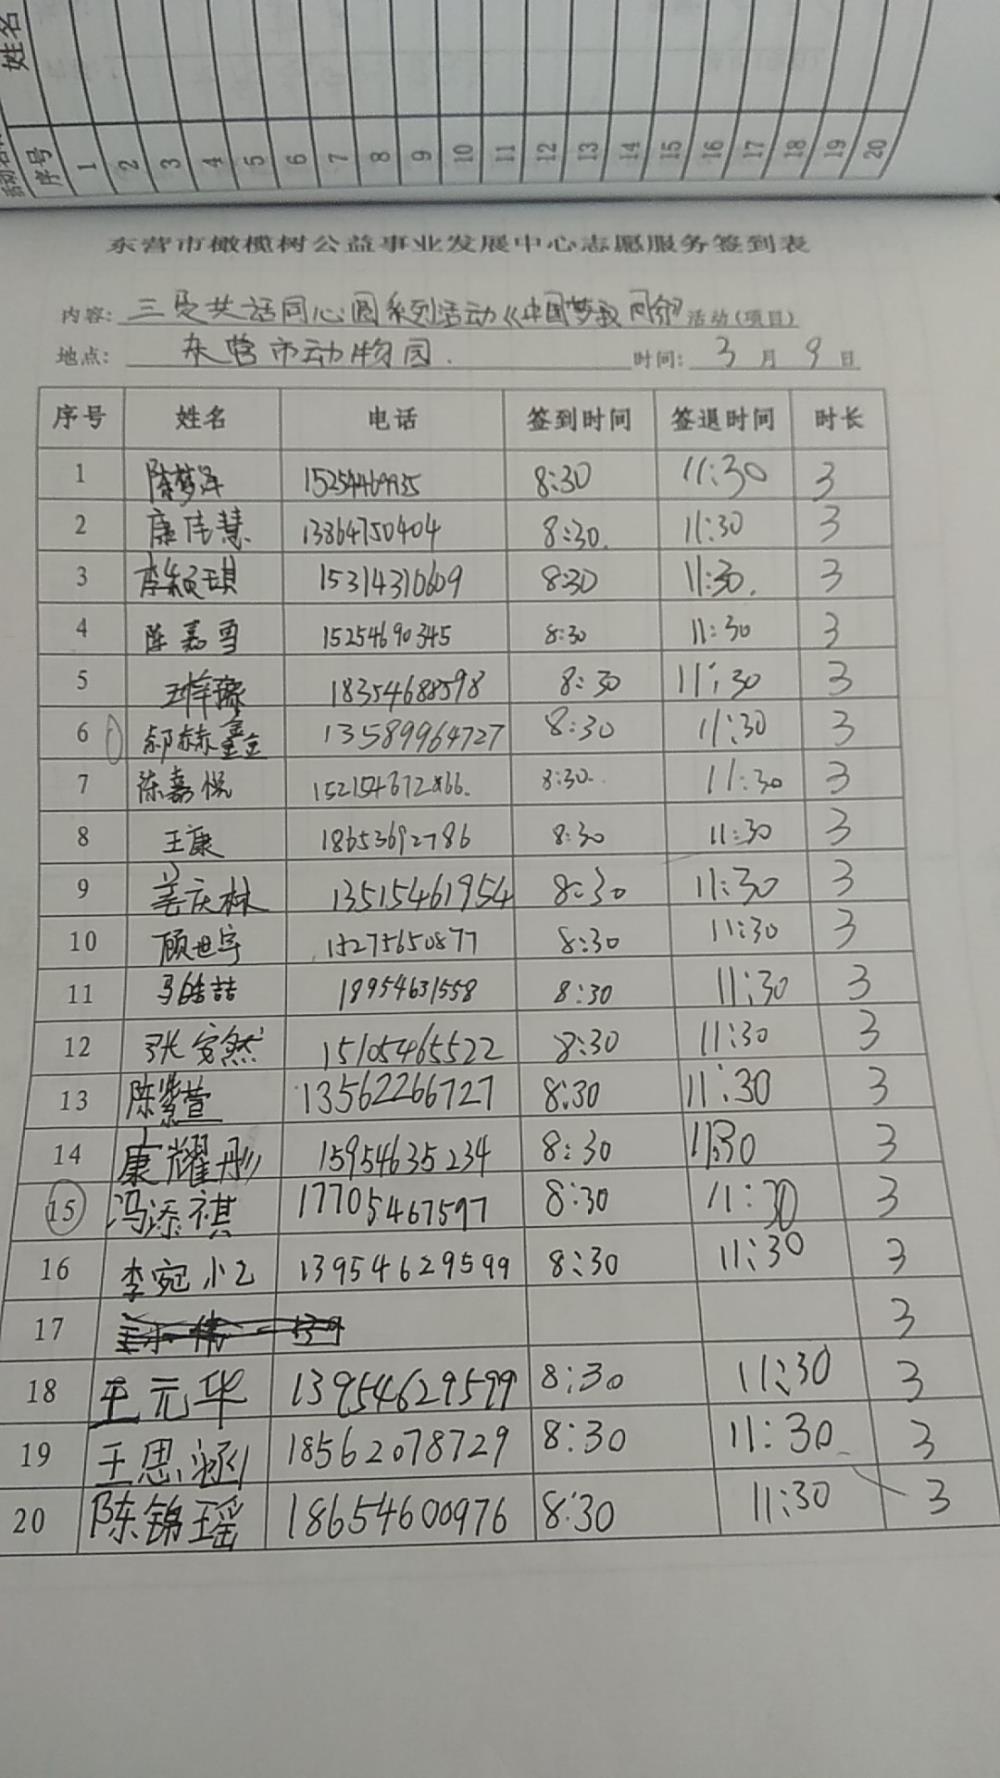 姓名
序号 1 2 3 4 5 6 7 8 9 10 11 12 13 14 15 16 17 18 19 20
东营市橄榄树公益事业发展中心志愿服务签到表
内容: 共话同心圆系列活动《中国梦 活动(项目)
地点: 东营市动物园. 时间: 3月9日
序号 姓名 电话 签到时间 签退时间 时长
1 陈梦 8:30 11:30 3
2 康佳慧 13864750404 8:30. 11:30 3
3 李颖琪 15314310609 8:30 11:30. 3
4 陈嘉雪 15254690345 8:30 11:30 3
5 18354688598 8:30 11:30 3
6 郝赫鑫 13589964727 8:30 11:30 3
7 陈嘉悦 8:30. 11:30 3
8 王康 18653692786 8:30 11:30 3
9 姜庆林 13515461954 8:30 11:30 3
10 顾世宇 15275650877 8:30 11:30 3
11 马皓喆 18954631558 8:30 11:30 3
12 张安然 15105465522 8:30 11:30 3
13 陈紫萱 13562266727 8:30 11:30 3
14 康耀彤 15954635234 8:30 11:30 3
15 冯添祺 17705467597 8:30 11:30 3
16 李宛 13954629599 8:30 11:30 3
17 3
18 王元华 13954629599 8:30 11:30 3
19 王思涵 18562078729 8:30 11:30 3
20 陈锦瑶 18654600976 8:30 11:30 3